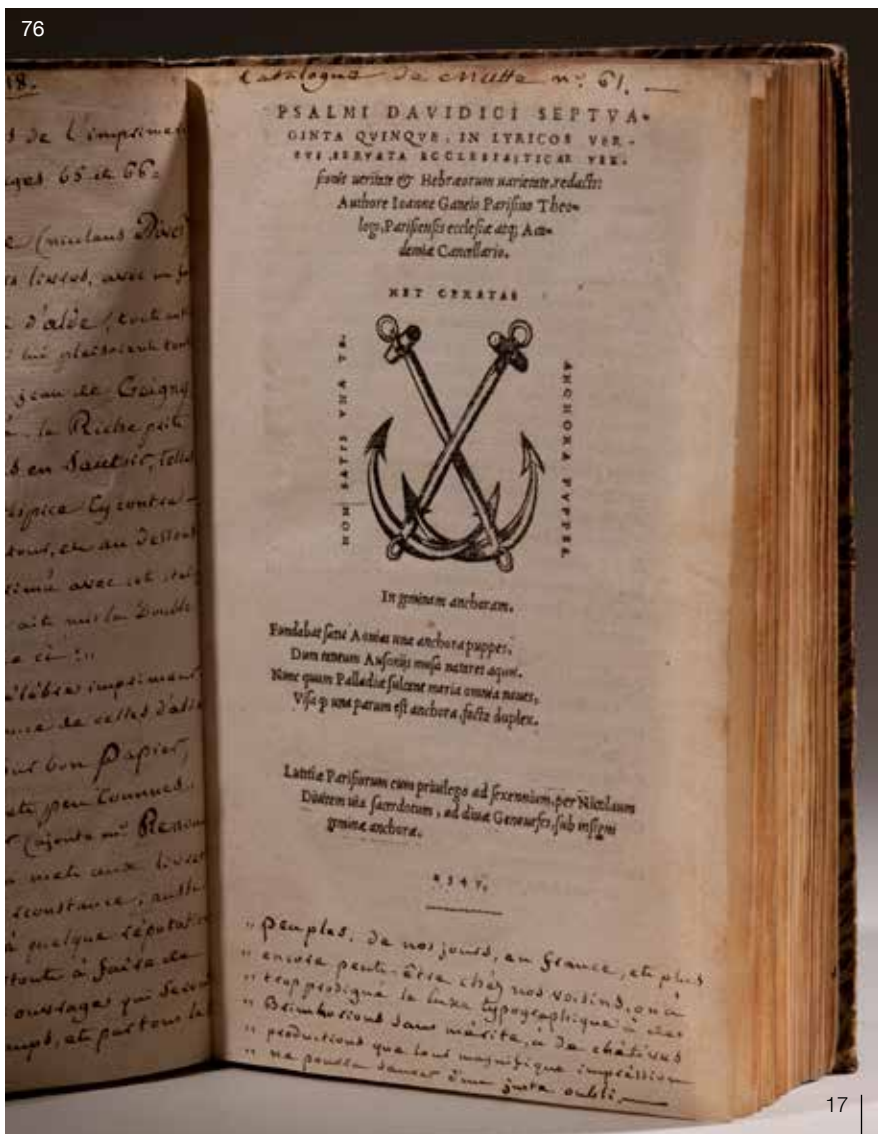 76
18.
s de l'imprimeu
ages 65 et 66.
e (nicolaus Dives
es livres, avec un
d'alde,
lui plaisaient
jean de Gaigny
la Riche
s en Sautoir, telle
ispice cy contre
tour, et au dessous
rimé avec cet
ait mis la Double
ci
élèbre imprimeur
une de celles d'alde
sur bon Papier,
et peu Connues.
(ajoute mr Renoua
aux livres
irconstance,
à quelque réputation
toute à faire de
ouvrages qui
et par tous les
Catalogue de Mutte no. 61.
PSALMI DAVIDICI SEPTVA-
GINTA QVINQVE, IN LYRICOS VER-
SVS, SERVATA ECCLESIASTICAE VER-
sionis ueritate & Hebræorum uarietate, redacti:
Authore Ioanne Ganeio Parisino Theo-
logo, Parisiensis ecclesiæ atq; Aca-
demiæ Cancellario.
NET CERTAS
NON SATIS VNA TE-
ANCHORA PVPPES.
In geminam anchoram.
Fundabat satis Aonias una anchora puppes,
Dum teneum Ausoniis musa nataret aquis.
Nunc quum Palladiæ sulcent maria omnia naues,
Visa q; una parum est anchora, facta duplex.
Lutetiæ Parisiorum cum priuilegio ad sexennium, per Nicolaum
Diuitem uia sacerdotum, ad diuæ Geneuefes, sub insigni
geminæ anchoræ.
1547.
" peuples. De nos jours, en France, et plus
" encore peut-être chez nos voisins, on a
" trop prodigué le luxe typographique à des
" Brimborions sans mérite, à de chétives
" productions que leur magnifique impression
" ne pourra sauver d'un juste oubli.
17